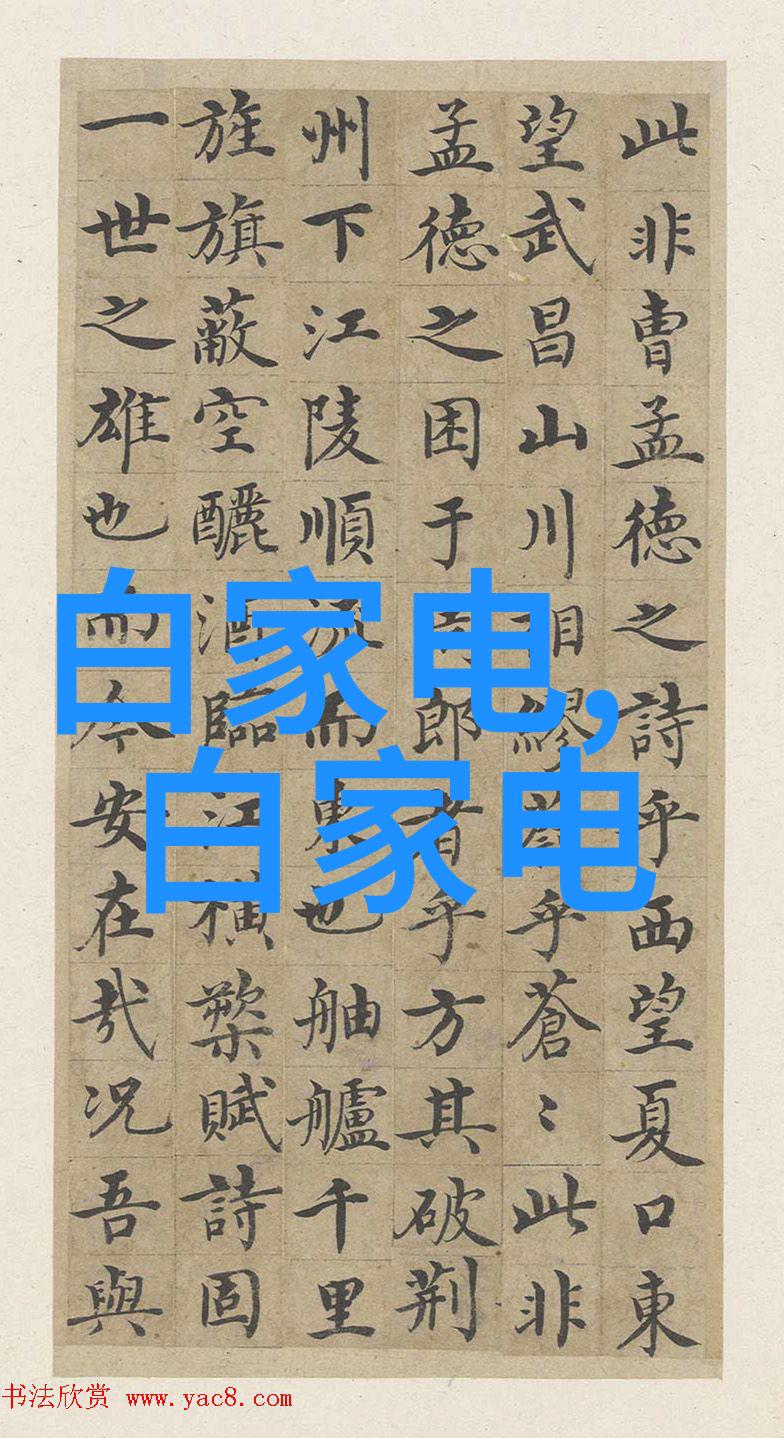 此非曹孟德之詩乎西望夏口東
望武昌山川相繆乎蒼〻此非
孟德之困于郎者乎方其破荆
州下江陵順流而東也舳艫千里
旌旗蔽空釃酒臨江横槊賦詩固
一世之雄也而今安在哉况吾與
白家电,
白家电
书法欣赏 www.yac8.com